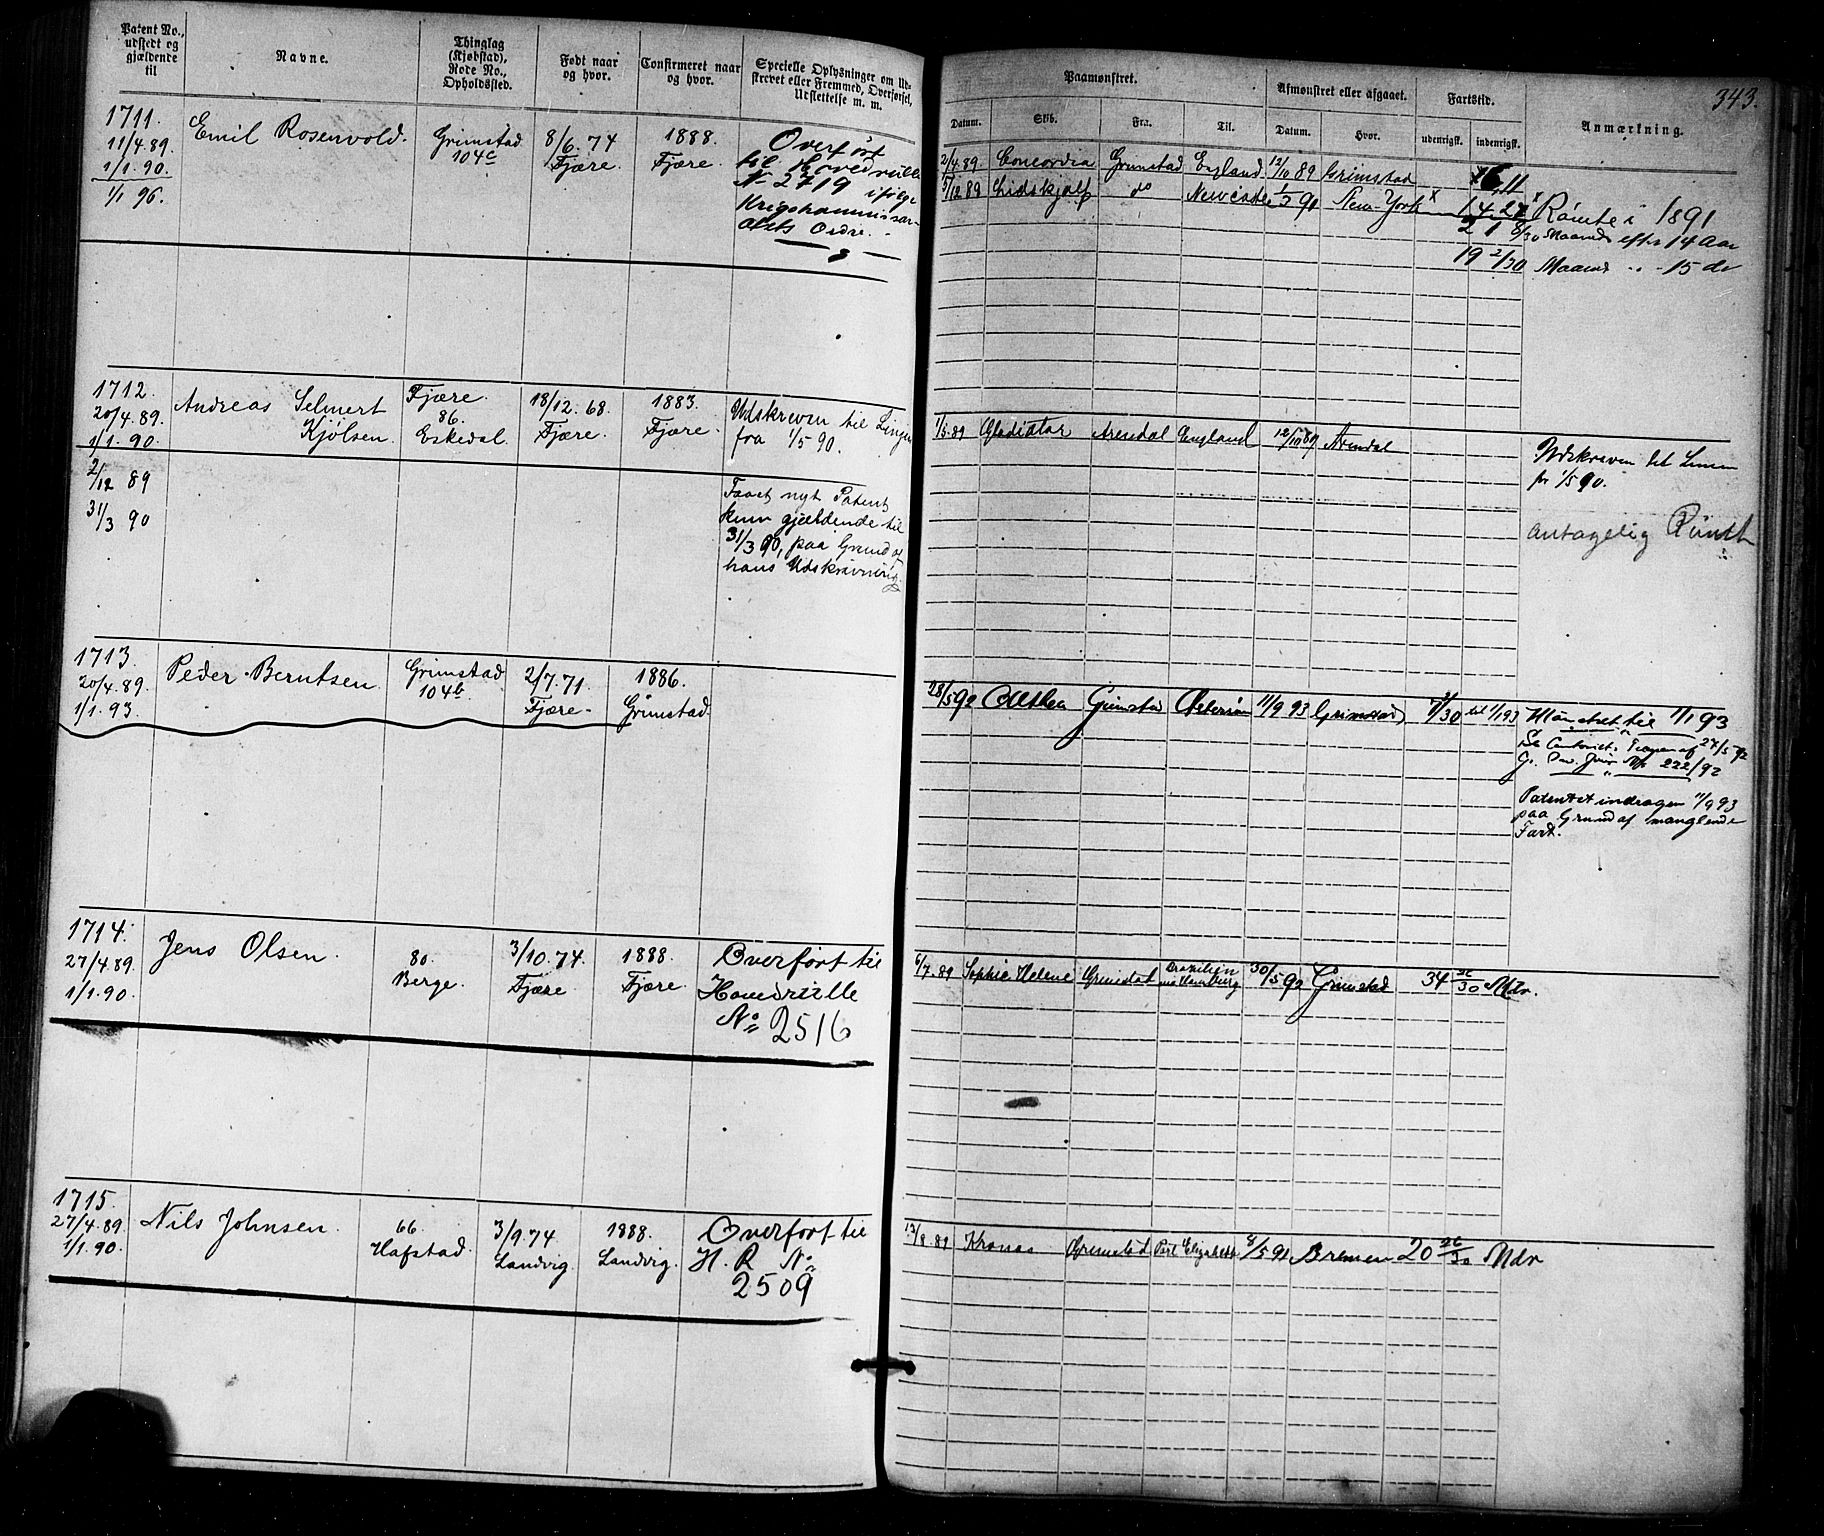 Patent No., udstedt og gjældende til
Navne.
Thinglag (Kjøbstad), Rode No., Opholdssted.
Født naar og hvor.
Confirmeret naar og hvor.
Specielle Oplysninger om Udskrevet eller Fremmed, Overførsel, Udslettelse m. m.
Paamønstret.
Datum.
Skib.
Fra.
Til.
Afmønstret eller afgaaet.
Datum.
Hvor.
Fartstid.
udenrigsk.
indenrigsk.
Anmærkning.
343.
1711.
11/4.89.
1/1.90.
1/1 96.
Emil Rosenvold.
Grimstad
104c
8/6.74
Fjære.
1888.
Fjære.
Overført
til Hovedrulle
No 2719 ifølge
Krigskommissar-
atets Ordre.
2/4.89. Concordia Grimstad England 12/10 89 Grimstad
5/12 89 Lidskjalf do Newcastle 1/5 91 New-York
14.27
Rømte i 1891
21 8/30 Maaned efter 14 Aar
19 2/30 Maaned " - 15 do
1712.
20/4.89.
1/1.90.
2/12 89
31/3 90
Andreas Selmert
Kjølsen.
Fjære.
86.
Eskedal.
18/12.68.
Fjære.
1883.
Fjære.
Udskreven til Linjen
fra 1/5 90.
Faaet nyt Patent
kun gjældende til
31/3 90, paa Grund af
hans Udskrivning.
1/5.89 Gladiator Arendal England 12/10 89 Arendal
Udskreven til Linien
fr 1/5 90.
Antagelig Rømt
1713.
20/4.89.
1/1.93.
Peder Berntsen.
Grimstad
104b
2/7.71.
Fjære.
1886.
Grimstad.
28/5 92 Althea Grimstad 11/9 93 Grimstad /30 til 1/1 93
Mønstret til 1/1 93
27/5 92
No 222/92
Patentet indragen 11/9 93
paa Grund af manglende
Fart.
1714.
27/4.89.
1/1.90.
Jens Olsen.
80.
Berge.
3/10.74.
Fjære.
1888.
Fjære.
Overført til
Hovedrulle
No 2516
6/7.89 Sophie Helene Grimstad Brasilien via Hamburg 30/5 92 Grimstad 34 26/30 Mdr.
1715.
27/4.89.
1/1.90.
Nils Johnsen.
66.
Hafstad.
3/9.74
Landvig.
1888.
Landvig.
Overført til
H. R No
2509
Kronos Grimstad Port Elizabeth 8/5 91 Bremen 20 26/30 Mdr